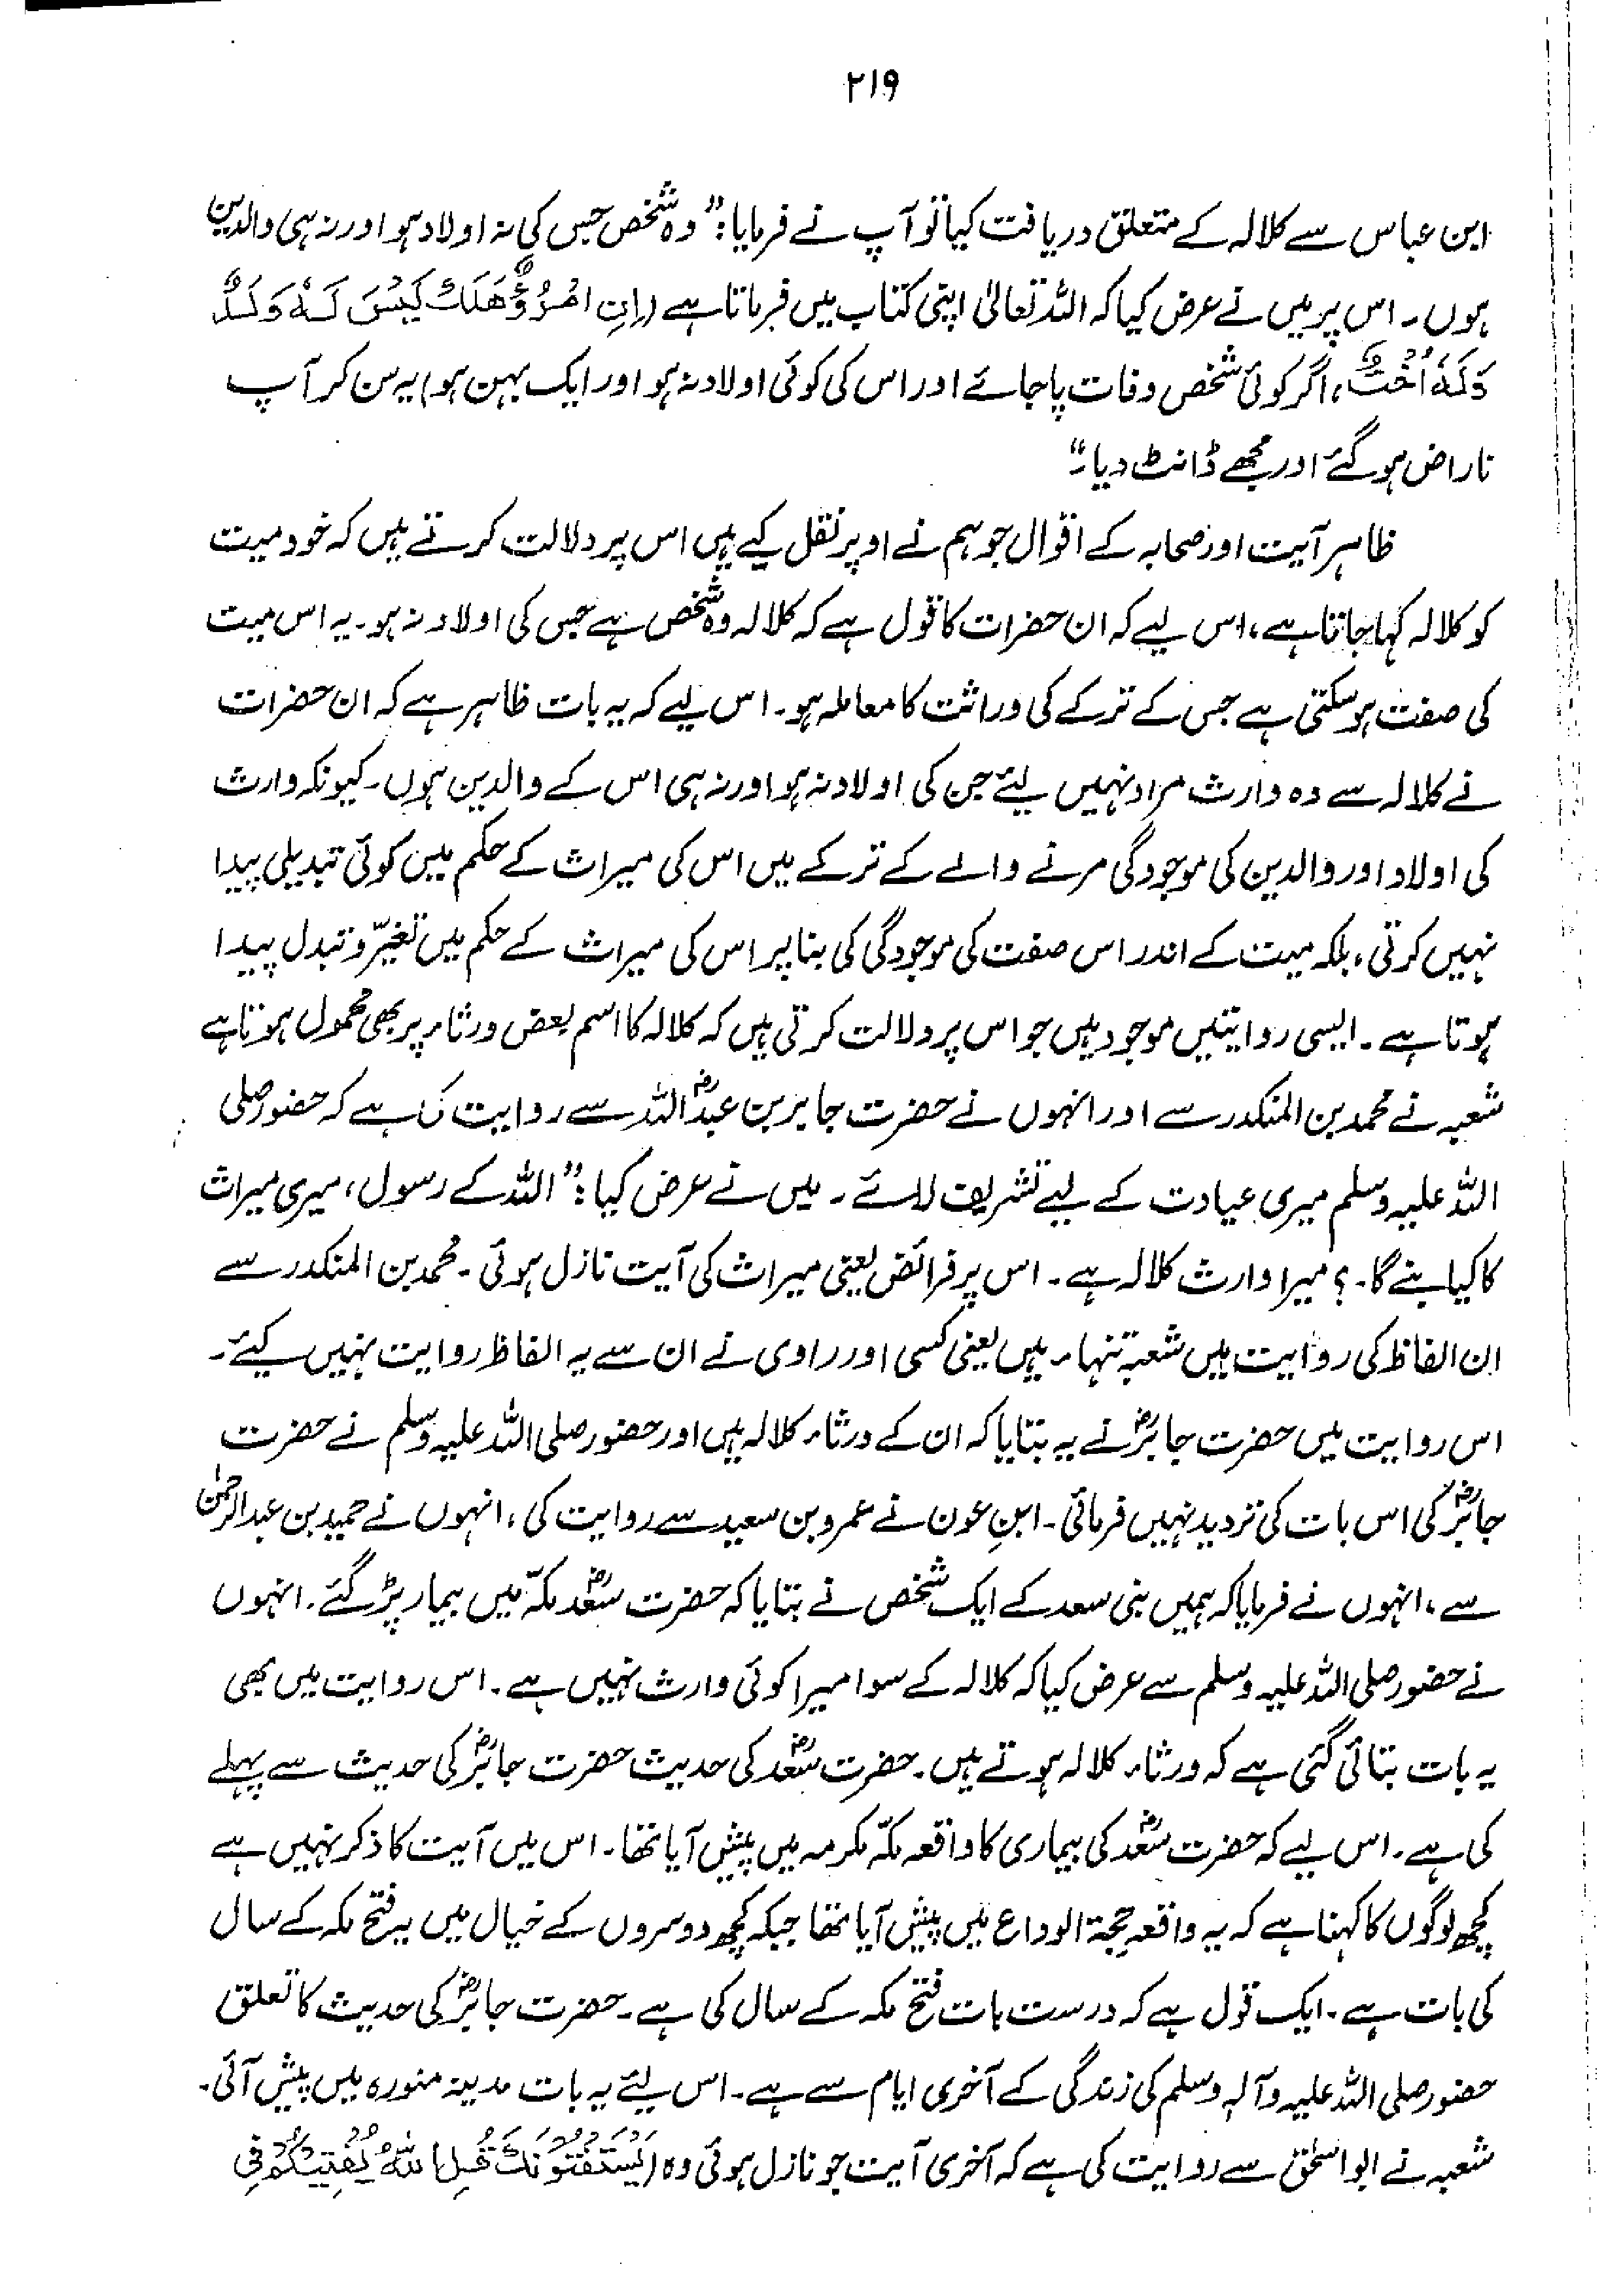 ۲۱۹
ابن عباس سے کلالہ کے متعلق دریافت کیا تو آپ نے فرمایا:" وہ شخص جس کی نہ اولاد ہو اور نہ ہی والدین
ہوں۔ اس پر میں نے عرض کیا کہ اللہ تعالیٰ اپنی کتاب میں فرماتا ہے (اِنِ امْرُؤٌ هَلَكَ لَيْسَ لَهٗ وَلَدٌ
وَّلَهٗ اُخْتٌ، اگر کوئی شخص وفات پا جائے اور اس کی کوئی اولاد نہ ہو اور ایک بہن ہو) یہ سن کر آپ
ناراض ہو گئے اور مجھے ڈانٹ دیا۔"
ظاہر آیت اور صحابہ کے اقوال جو ہم نے اوپر نقل کیے ہیں اس پر دلالت کرتے ہیں کہ خود میت
کو کلالہ کہا جاتا ہے، اس لیے کہ ان حضرات کا قول ہے کہ کلالہ وہ شخص ہے جس کی اولاد نہ ہو۔ یہ اس میت
کی صفت ہو سکتی ہے جس کے ترکے کی وراثت کا معاملہ ہو۔ اس لیے کہ یہ بات ظاہر ہے کہ ان حضرات
نے کلالہ سے وہ وارث مراد نہیں لیئے جن کی اولاد نہ ہو اور نہ ہی اس کے والدین ہوں۔ کیونکہ وارث
کی اولاد اور والدین کی موجودگی مرنے والے کے ترکے میں اس کی میراث کے حکم میں کوئی تبدیلی پیدا
نہیں کرتی، بلکہ میت کے اندر اس صفت کی موجودگی کی بنا پر اس کی میراث کے حکم میں تغیّر و تبدل پیدا
ہوتا ہے۔ ایسی روایتیں موجود ہیں جو اس پر دلالت کرتی ہیں کہ کلالہ کا اسم بعض ورثاء پر بھی محمول ہوتا ہے
شعبہ نے محمد بن المنکدر سے اور انہوں نے حضرت جابر بن عبدؓ اللہ سے روایت کی ہے کہ حضور صلی
اللہ علیہ وسلم میری عیادت کے لیے تشریف لائے۔ میں نے عرض کیا:" اللہ کے رسول، میری میراث
کا کیا بنے گا۔؟ میرا وارث کلالہ ہے۔ اس پر فرائض یعنی میراث کی آیت نازل ہوئی۔ محمد بن المنکدر سے
ان الفاظ کی روایت میں شعبہ تنہاء ہیں یعنی کسی اور راوی نے ان سے یہ الفاظ روایت نہیں کیئے۔
اس روایت میں حضرت جابرؓ نے یہ بتایا کہ ان کے ورثاء کلالہ ہیں اور حضور صلی اللہ علیہ وسلم نے حضرت
جابرؓ کی اس بات کی تردید نہیں فرمائی۔ ابنِ عون نے عمرو بن سعید سے روایت کی، انہوں نے حمید بن عبدالرحمٰن
سے، انہوں نے فرمایا کہ ہمیں بنی سعد کے ایک شخص نے بتایا کہ حضرت سعدؓ مکّہ میں بیمار پڑ گئے۔ انہوں
نے حضور صلی اللہ علیہ وسلم سے عرض کیا کہ کلالہ کے سوا میرا کوئی وارث نہیں ہے۔ اس روایت میں بھی
یہ بات بتائی گئی ہے کہ ورثاء کلالہ ہوتے ہیں۔ حضرت سعدؓ کی حدیث حضرت جابرؓ کی حدیث سے پہلے
کی ہے۔ اس لیے کہ حضرت سعدؓ کی بیماری کا واقعہ مکّہ مکرمہ میں پیش آیا تھا۔ اس میں آیت کا ذکر نہیں ہے
کچھ لوگوں کا کہنا ہے کہ یہ واقعہ حجۃ الوداع میں پیش آیا تھا جبکہ کچھ دوسروں کے خیال میں یہ فتح مکہ کے سال
کی بات ہے۔ ایک قول ہے کہ درست بات فتح مکہ کے سال کی ہے۔ حضرت جابرؓ کی حدیث کا تعلق
حضور صلی اللہ علیہ وآلہٖ وسلم کی زندگی کے آخری ایام سے ہے۔ اس لیئے یہ بات مدینہ منورہ میں پیش آئی۔
شعبہ نے ابواسحٰق سے روایت کی ہے کہ آخری آیت جو نازل ہوئی وہ (يَسْتَفْتُوْنَكَ قُلِ اللّٰهُ يُفْتِيْكُمْ فِي